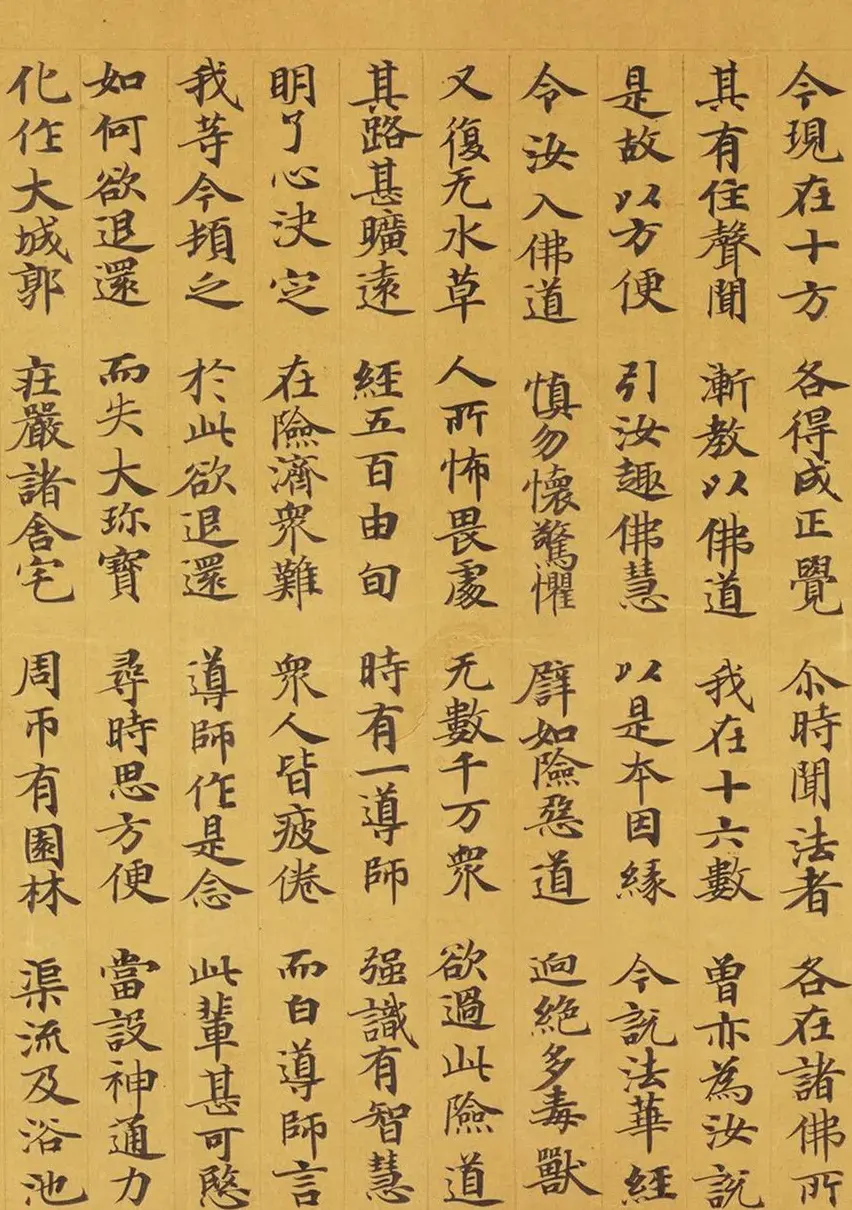 今現在十方 各得成正覺 尒時聞法者 各在諸佛所
其有住聲聞 漸教以佛道 我在十六數 曾亦為汝說
是故以方便 引汝趣佛慧 以是本因緣 今說法華經
令汝入佛道 慎勿懷驚懼 譬如險惡道 逈絕多毒獸
又復无水草 人所怖畏處 无數千万眾 欲過此險道
其路甚曠遠 經五百由旬 時有一導師 强識有智慧
明了心決定 在險濟眾難 眾人皆疲倦 而白導師言
我等今頓乏 於此欲退還 導師作是念 此輩甚可愍
如何欲退還 而失大珎寶 尋時思方便 當設神通力
化作大城郭 莊嚴諸舍宅 周帀有園林 渠流及浴池